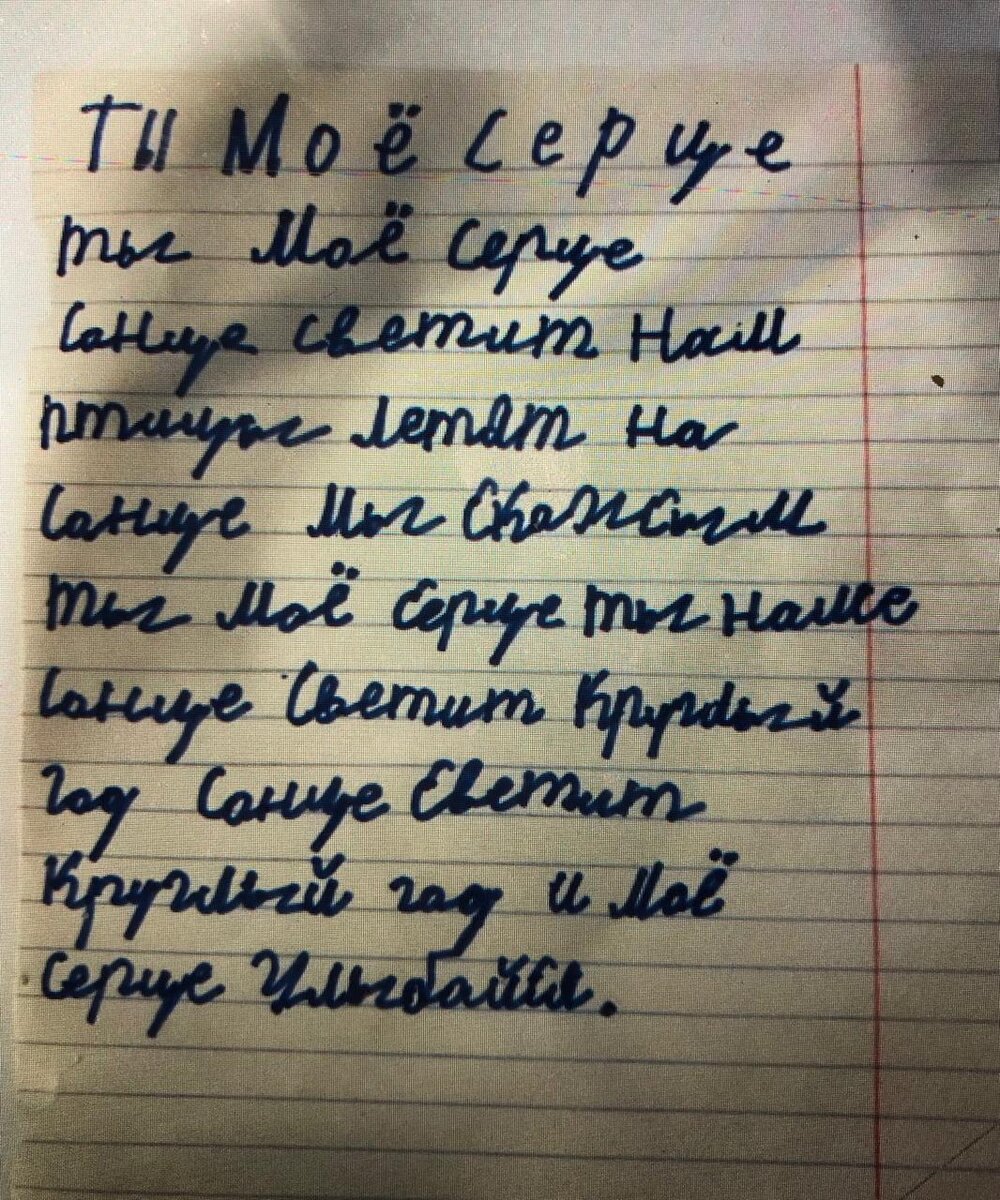 Ты Моё Серце
ты Моё Серце
Санце светит Нам
птицы летят На
Санце Мы Скажем
ты Моё Серце ты Наше
Санце Светит Круглый
год Санце Светит
Круглый год и Моё
серце Улыбайся.